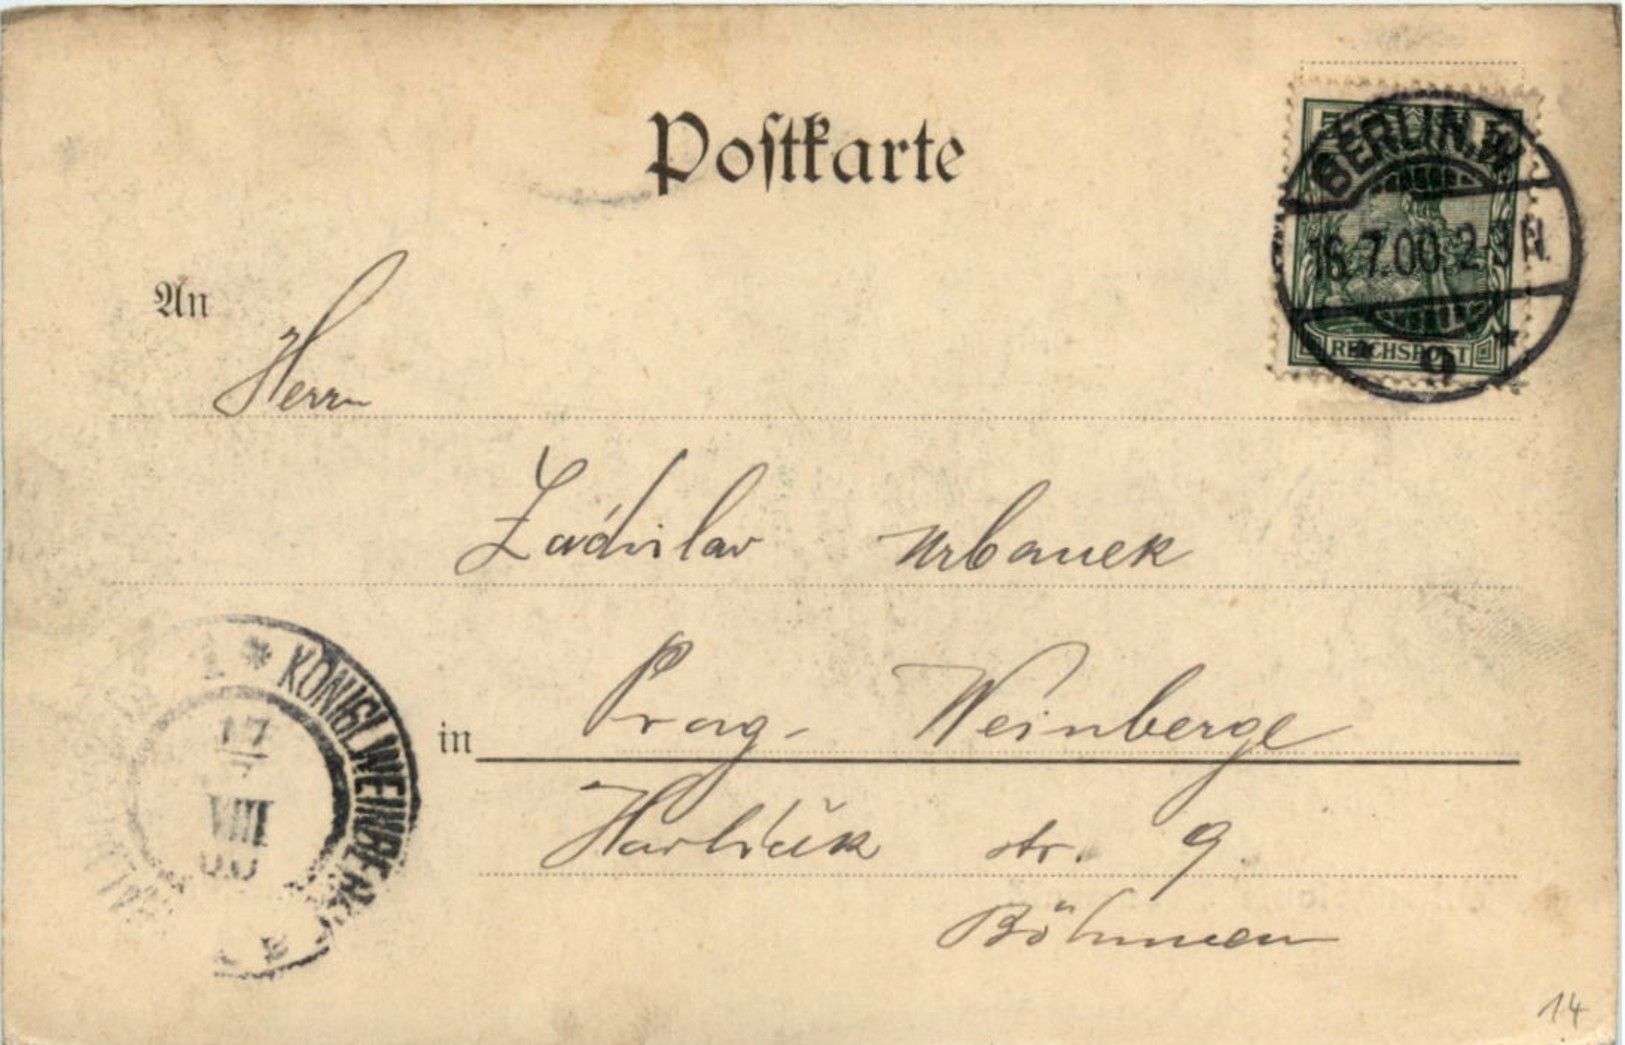 Postkarte
BERLIN.W
16.7.00.2-3N.
REICHSPOST
9 *
An
Herrn
Ladislav Urbanek
* KÖNIGL.WEINBERGE
17
VIII
00
in Prag- Weinberge
Havlíček str. 9
Böhmen
14